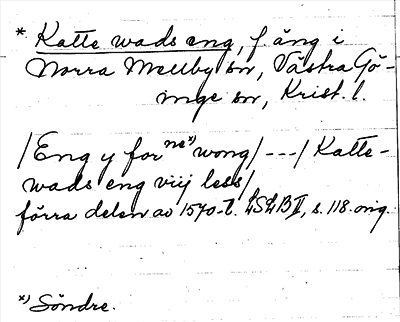 * Katte wads eng, f. äng i
Norra Mellby sn, Västra Gö-
inge sn, Krist. l.
/Eng y for ne *) wong/ --- / Katte-
wads eng viij less/
förra delen av 1570-t. LSLB II, s. 118. orig.
*) Söndre.